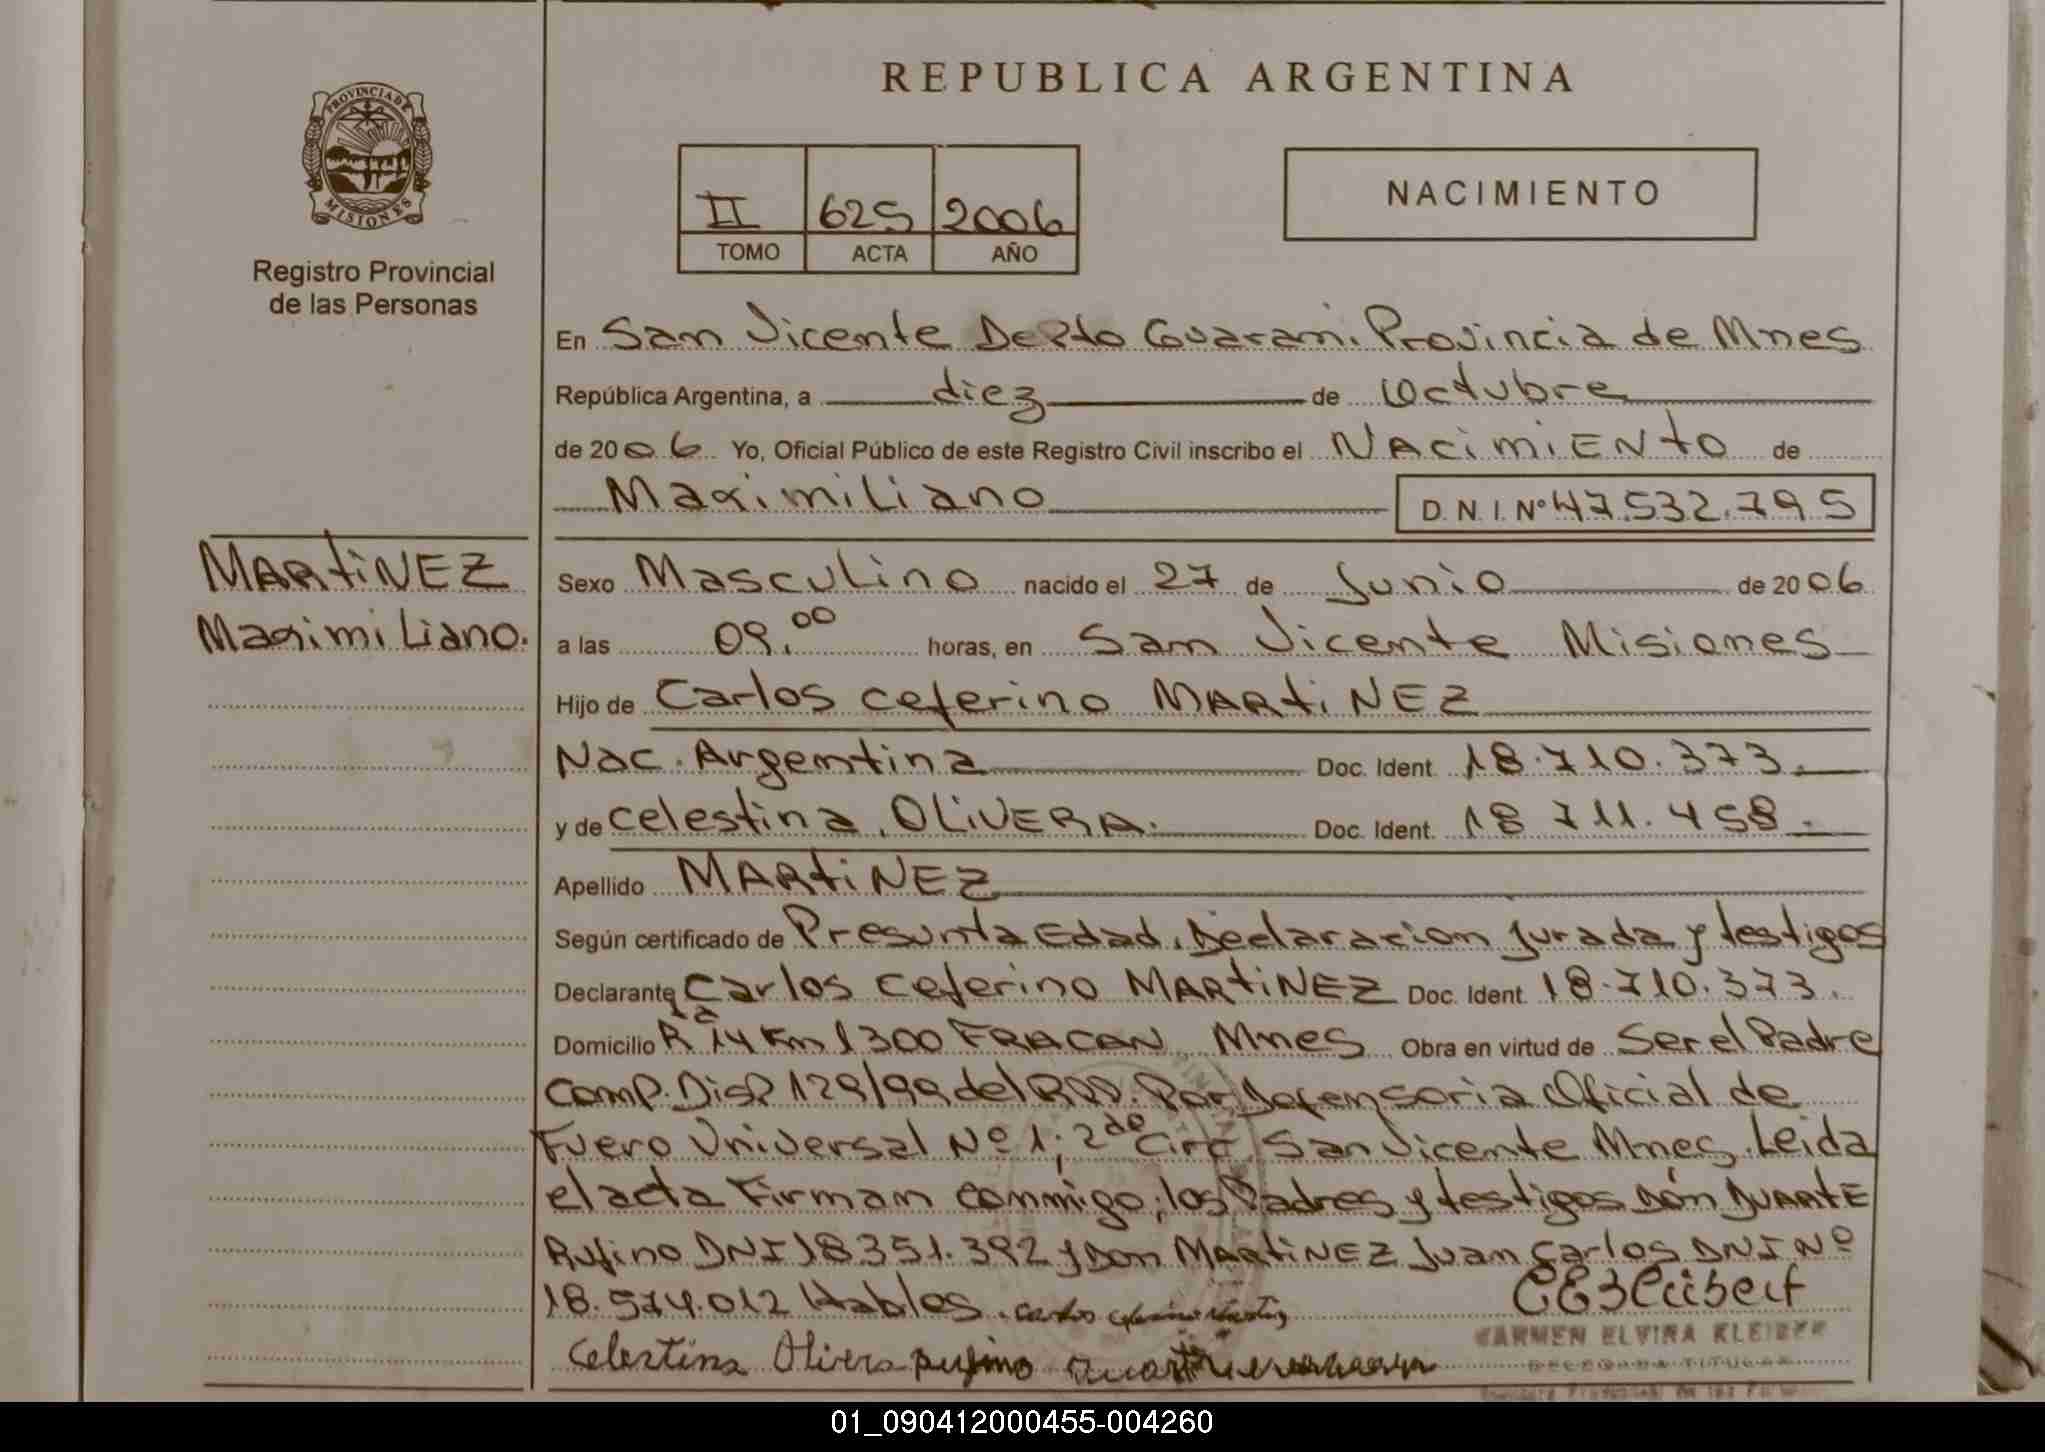 REPUBLICA ARGENTINA
PROVINCIA DE
MISIONES
Registro Provincial
de las Personas
II 625 2006
TOMO ACTA AÑO
NACIMIENTO
En San Vicente Depto Guarani. Provincia de Mnes
República Argentina, a diez de Octubre
de 2006 Yo, Oficial Público de este Registro Civil inscribo el NACimiENto de
Maximiliano D.N.I. Nº 47.532.795
MARtiNEZ
Maximiliano.
Sexo Masculino nacido el 27 de Junio de 2006
a las 09.00 horas, en San Vicente Misiones
Hijo de Carlos Ceferino MARtiNEZ
Nac. Argentina Doc. Ident. 18.710.373.
y de Celestina, OLiVERA. Doc. Ident. 18 711.458.
Apellido MARtiNEZ
Según certificado de Presunta Edad, Declaracion Jurada y testigos
Declarante Carlos Ceferino MARtiNEZ Doc. Ident. 18.710.373.
Domicilio Rta 14 Km 1300 FRACAN, Mnes Obra en virtud de Ser el Padre
Comp. Disp 129/99 del RPP. Por Defensoria Oficial de
Fuero Universal Nº 1, 2da Circ. San Vicente Mnes. Leida
el acta Firman conmigo, los Padres y testigos Dón DUARTE
Rufino DNI 18.351.392 y Don MARtiNEZ Juan Carlos DNI Nº
18.574.012 Hables.
Celestina Olivera Rufino Duarte
CARMEN ELVIRA KLEIBER
DELEGADA TITULAR
01_090412000455-004260